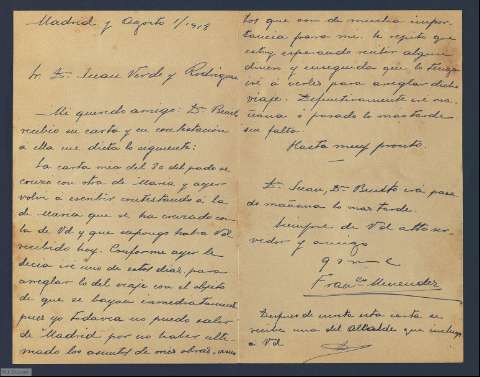 Madrid y Agosto 1/1918
Sr. D. Juan Verde y Rodríguez
Mi querido amigo: D. Benito
recibió su carta y en contestación
a ella me dicta lo siguiente:
La carta mia del 30 del pado se
cruzo con otra de Maria y ayer
volvi a escribir contestando a la
de Maria que se ha cruzado con
la de Vd y que supongo habra Vd
recibido hoy. Conforme ayer le
decia iré uno de estos dias para
arreglar lo del viaje con el objeto
de que se vayan inmediatamente
pues yo todavia no puedo salir
de Madrid por no haber ulti-
mado los asuntos de mis obras,
tos que son de muestra impor-
tancia para mi. Le repito que
estoy esperando recibir algun
dinero y enseguida que lo tenga
iré a verles para arreglar dicho
viaje. Definitivamente iré ma-
ñana o pasado lo mas tarde
sin falta.
Hasta muy pronto.
D. Juan, D. Benito irá pasa-
do mañana lo mas tarde.
Siempre de Vd atto ser-
vidor y amigo
q s m e
Franco Menendez
Despues de escrita esta carta se
recibe una del alcalde que incluyo
a Vd